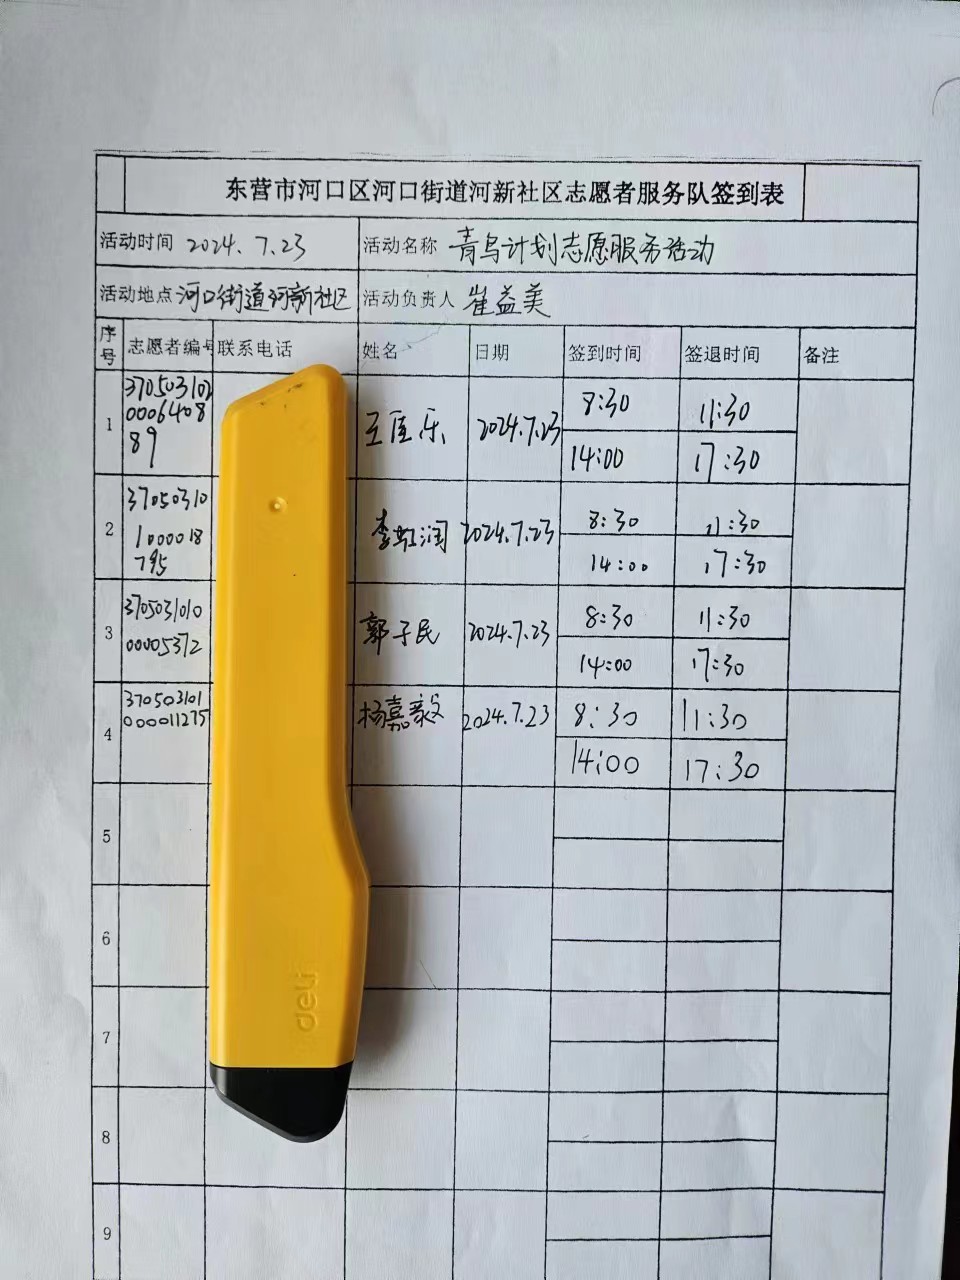 东营市河口区河口街道河新社区志愿者服务队签到表
活动时间 2024.7.23 活动名称 青鸟计划志愿服务活动
活动地点 河口街道河新社区 活动负责人 崔益美
序号 志愿者编号 联系电话 姓名 日期 签到时间 签退时间 备注
370503102
1 0006408 王佳乐 2024.7.23 8:30 11:30
89 14:00 17:30
37050310
2 1000018 李 润 2024.7.23 8:30 11:30
795 14:00 17:30
3 3705031010 郭子民 2024.7.23 8:30 11:30
00005372 14:00 17:30
370503101 杨嘉毅 2024.7.23 8:30 11:30
4 000011275 14:00 17:30
5
6
7
8
9
deli